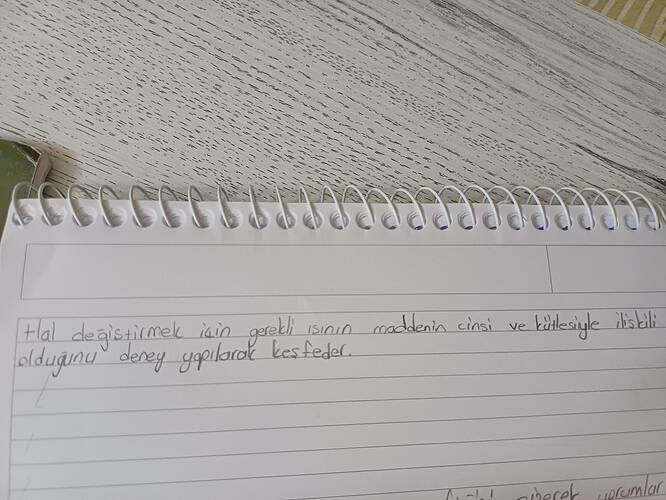 Hal değiştirmek için gerekli ısının maddenin cinsi ve kütlesiyle ilişkili
olduğunu deney yapılarak keşfeder.
yorumlar